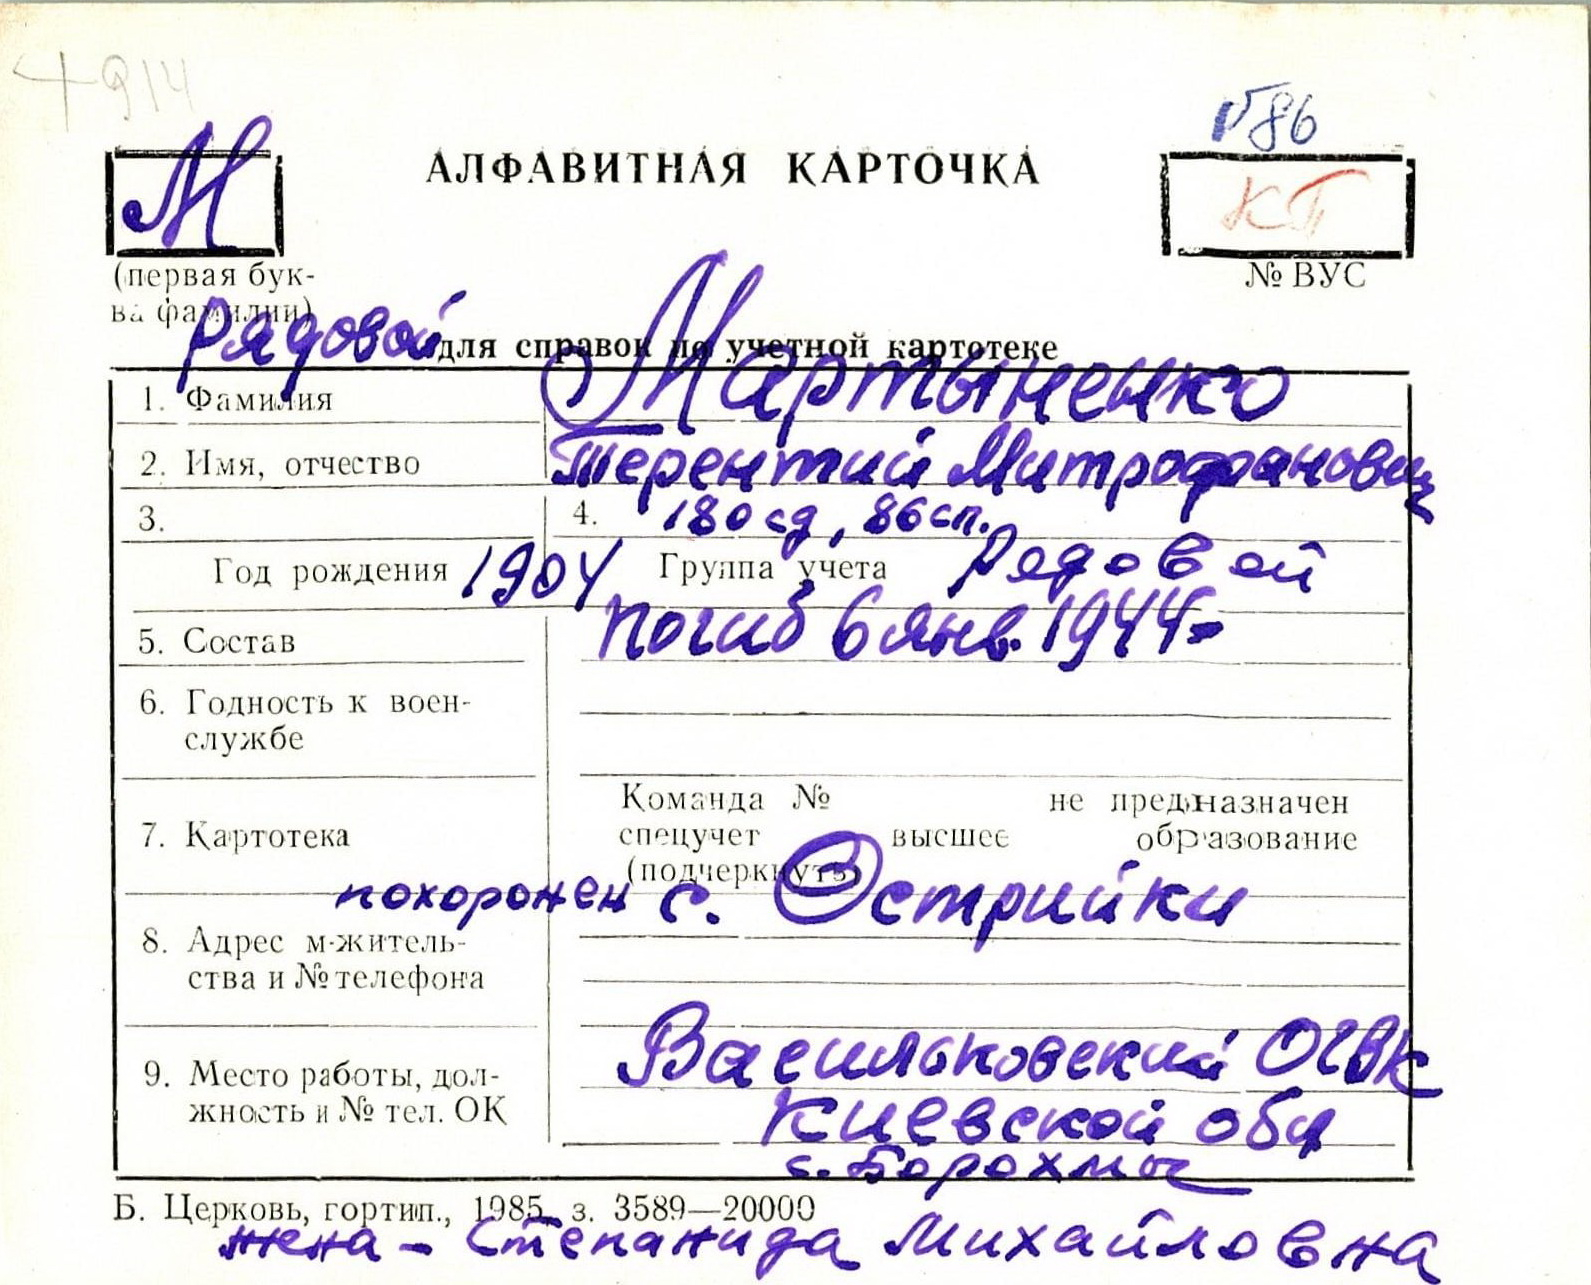 +914
№86
М
АЛФАВИТНАЯ КАРТОЧКА
КП
(первая бук-
ва фамилии)
№ ВУС
Рядовой
для справок по учетной картотеке
1. Фамилия Мартыненко
2. Имя, отчество Терентий Митрофанович
3. 4. 180 сд, 86 сп.
Год рождения 1904 Группа учета Рядовой
5. Состав погиб 6 янв. 1944
6. Годность к воен-
службе
Команда № не предназначен
7. Картотека спецучет высшее образование
(подчеркнуть)
похоронен с. Острийки
8. Адрес м-житель-
ства и № телефона
Васильковский ОГВК
9. Место работы, дол-
жность и № тел. ОК
Киевской обл
с.
Б. Церковь, гортип., 1985, з. 3589—20000
жена - Степанида Михайловна